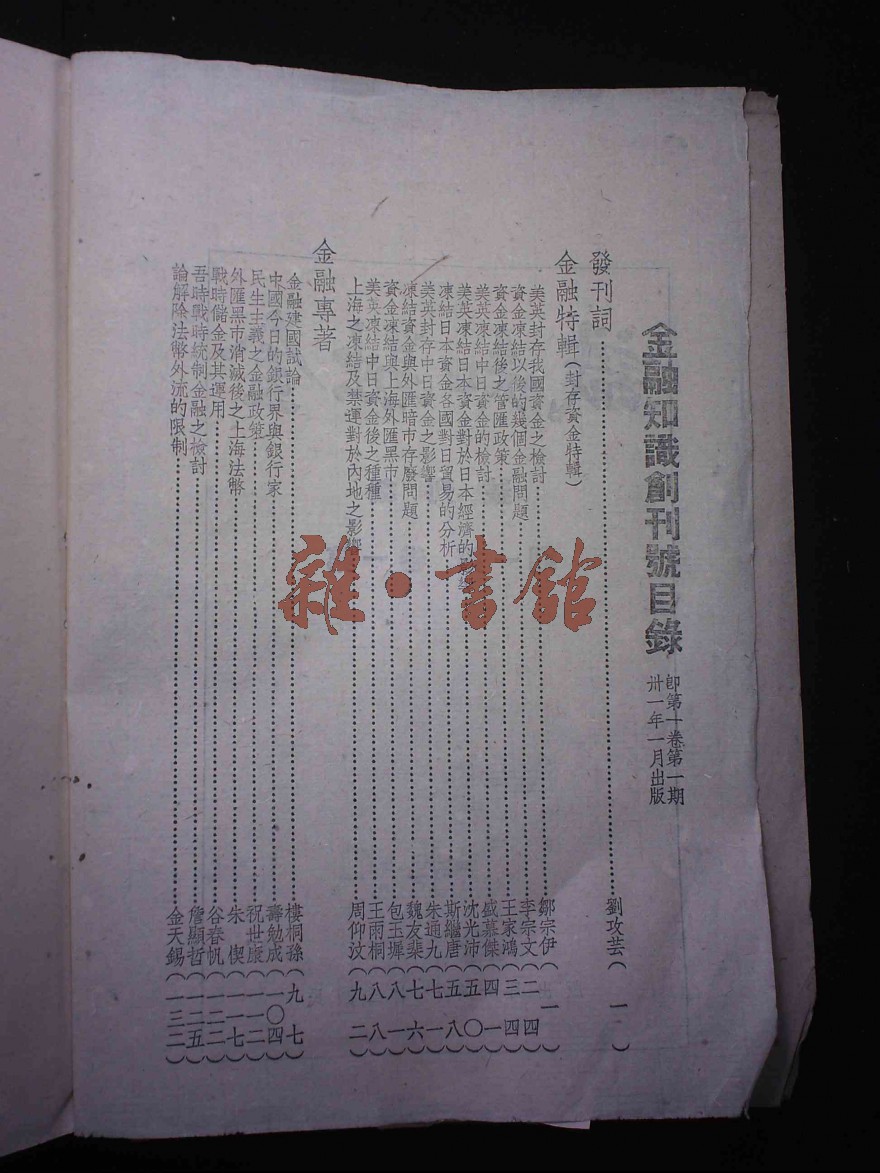 金融知識創刊號目錄
即第一卷第一期
卅一年一月出版
發刊詞……劉攻芸(一)
金融特輯(封存資金特輯)
美英封存我國資金之檢討……鄒宗伊(一)
資金凍結以後的幾個金融問題……李宗文(二四)
資金凍結後之管匯政策……王家鴻(三四)
美英凍結中日資金的檢討……盛慕傑(四一)
美英凍結日本資金對於日本經濟的影響……沈光沛(五〇)
凍結日本資金各國對日貿易的分析……斯繼唐(五八)
美英封存中日資金之影響……朱通九(七一)
凍結資金與外匯暗市存廢問題……魏友棐(七六)
資金凍結與上海外匯黑市……包玉墀(八一)
美英凍結中日資金後之種種……王雨桐(八八)
上海之凍結及禁運對於內地之影響……周仰汶(九二)
金融專著
金融建國試論……樓桐孫(九七)
中國今日的銀行界與銀行家……壽勉成(一〇四)
民生主義之金融政策……祝世康(一一二)
外匯黑市消滅後之上海法幣……朱偰(一一七)
戰時儲金及其運用……谷春帆(一二二)
吾時戰時統制金融之檢討……詹顯哲(一二五)
論解除法幣外流的限制……金天錫(一三二)
雜·書館